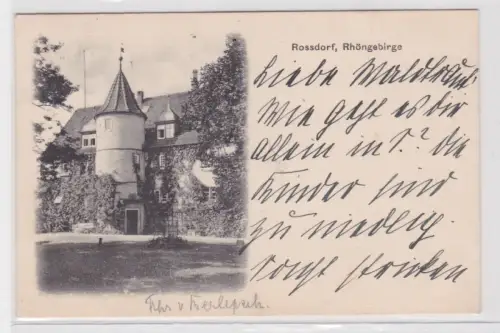 Rossdorf, Rhöngebirge
Liebe Waldtraut
Wie geht es dir
allein in S.? die
Kinder sind
zu niedlig.
stricken
Frhr v